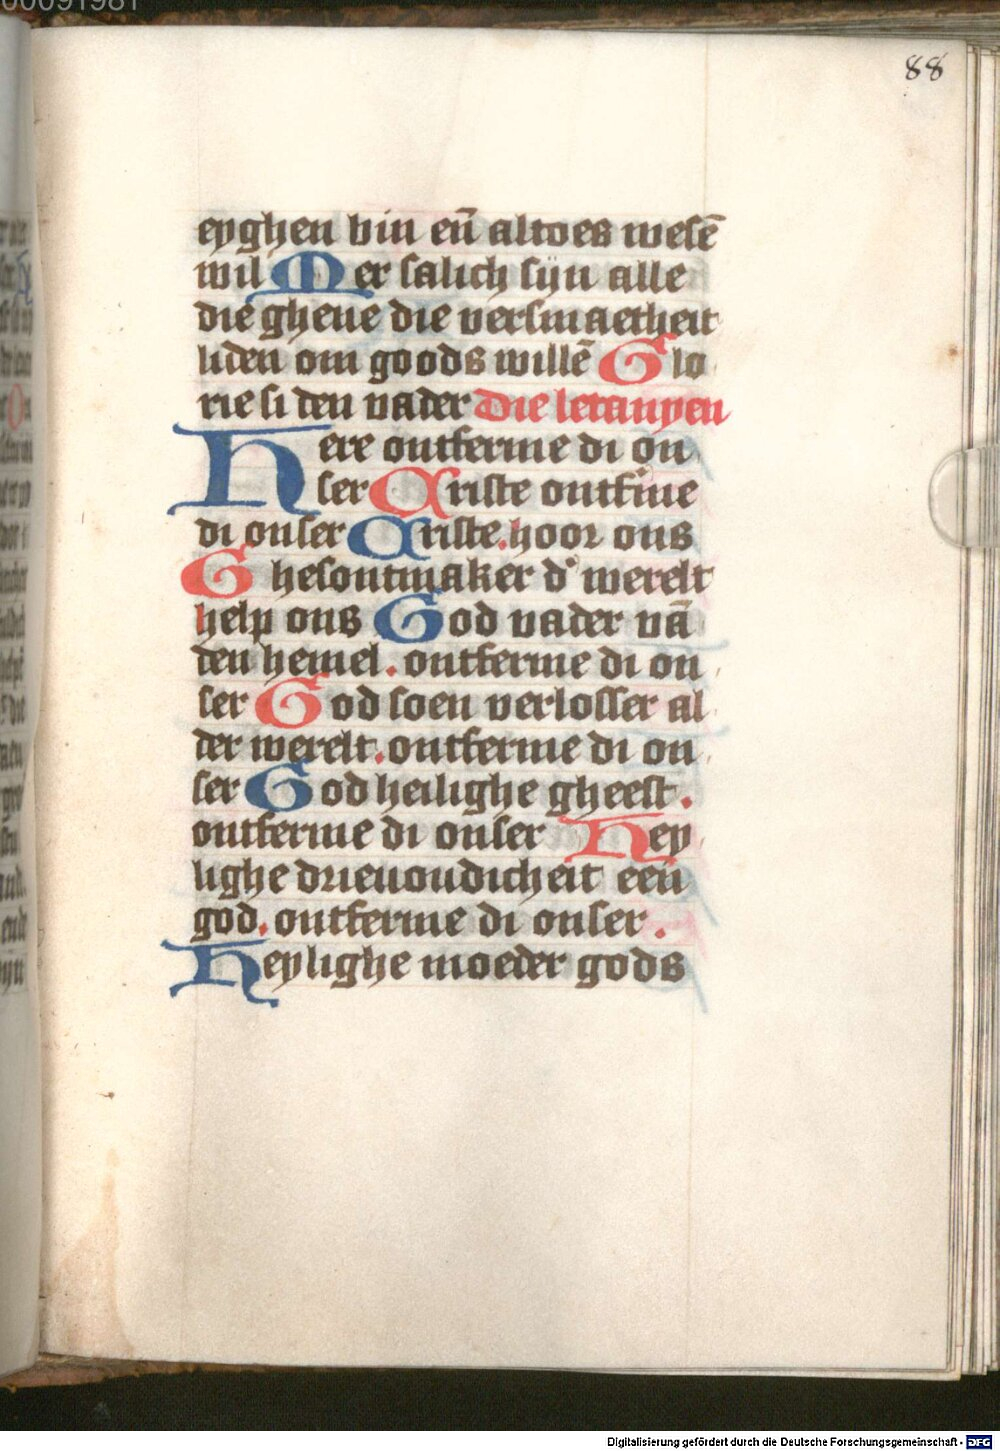 00091981
88
eyghen bin en̄ altoes wesē
wil Mer salich sijn alle
die ghene die versmaetheit
liden om goods willē Glo
rie si den vader Die letanyen
Here ontferme di on
ser Criste ontfme
di onser Criste. hoor ons
Ghesontmaker d' werelt
help ons God vader vā
den hemel. ontferme di on
ser God soen verlosser al
der werelt. ontferme di on
ser God heilighe gheest.
ontferme di onser Hey
lighe drievoudicheit een
god. ontferme di onser.
Heylighe moeder gods
Digitalisierung gefördert durch die Deutsche Forschungsgemeinschaft - DFG